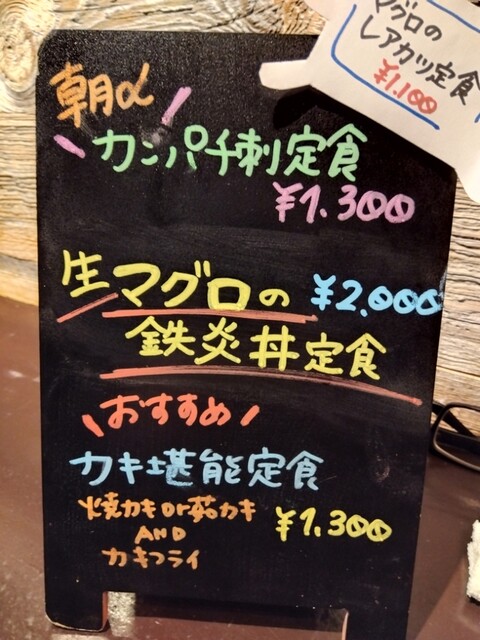 マグロの
レアカツ定食
¥1.100
朝〆
カンパチ刺定食
¥1.300
生マグロの ¥2.000
鉄炎丼定食
おすすめ
カキ堪能定食
焼カキor茹カキ
AND
カキフライ
¥1.300